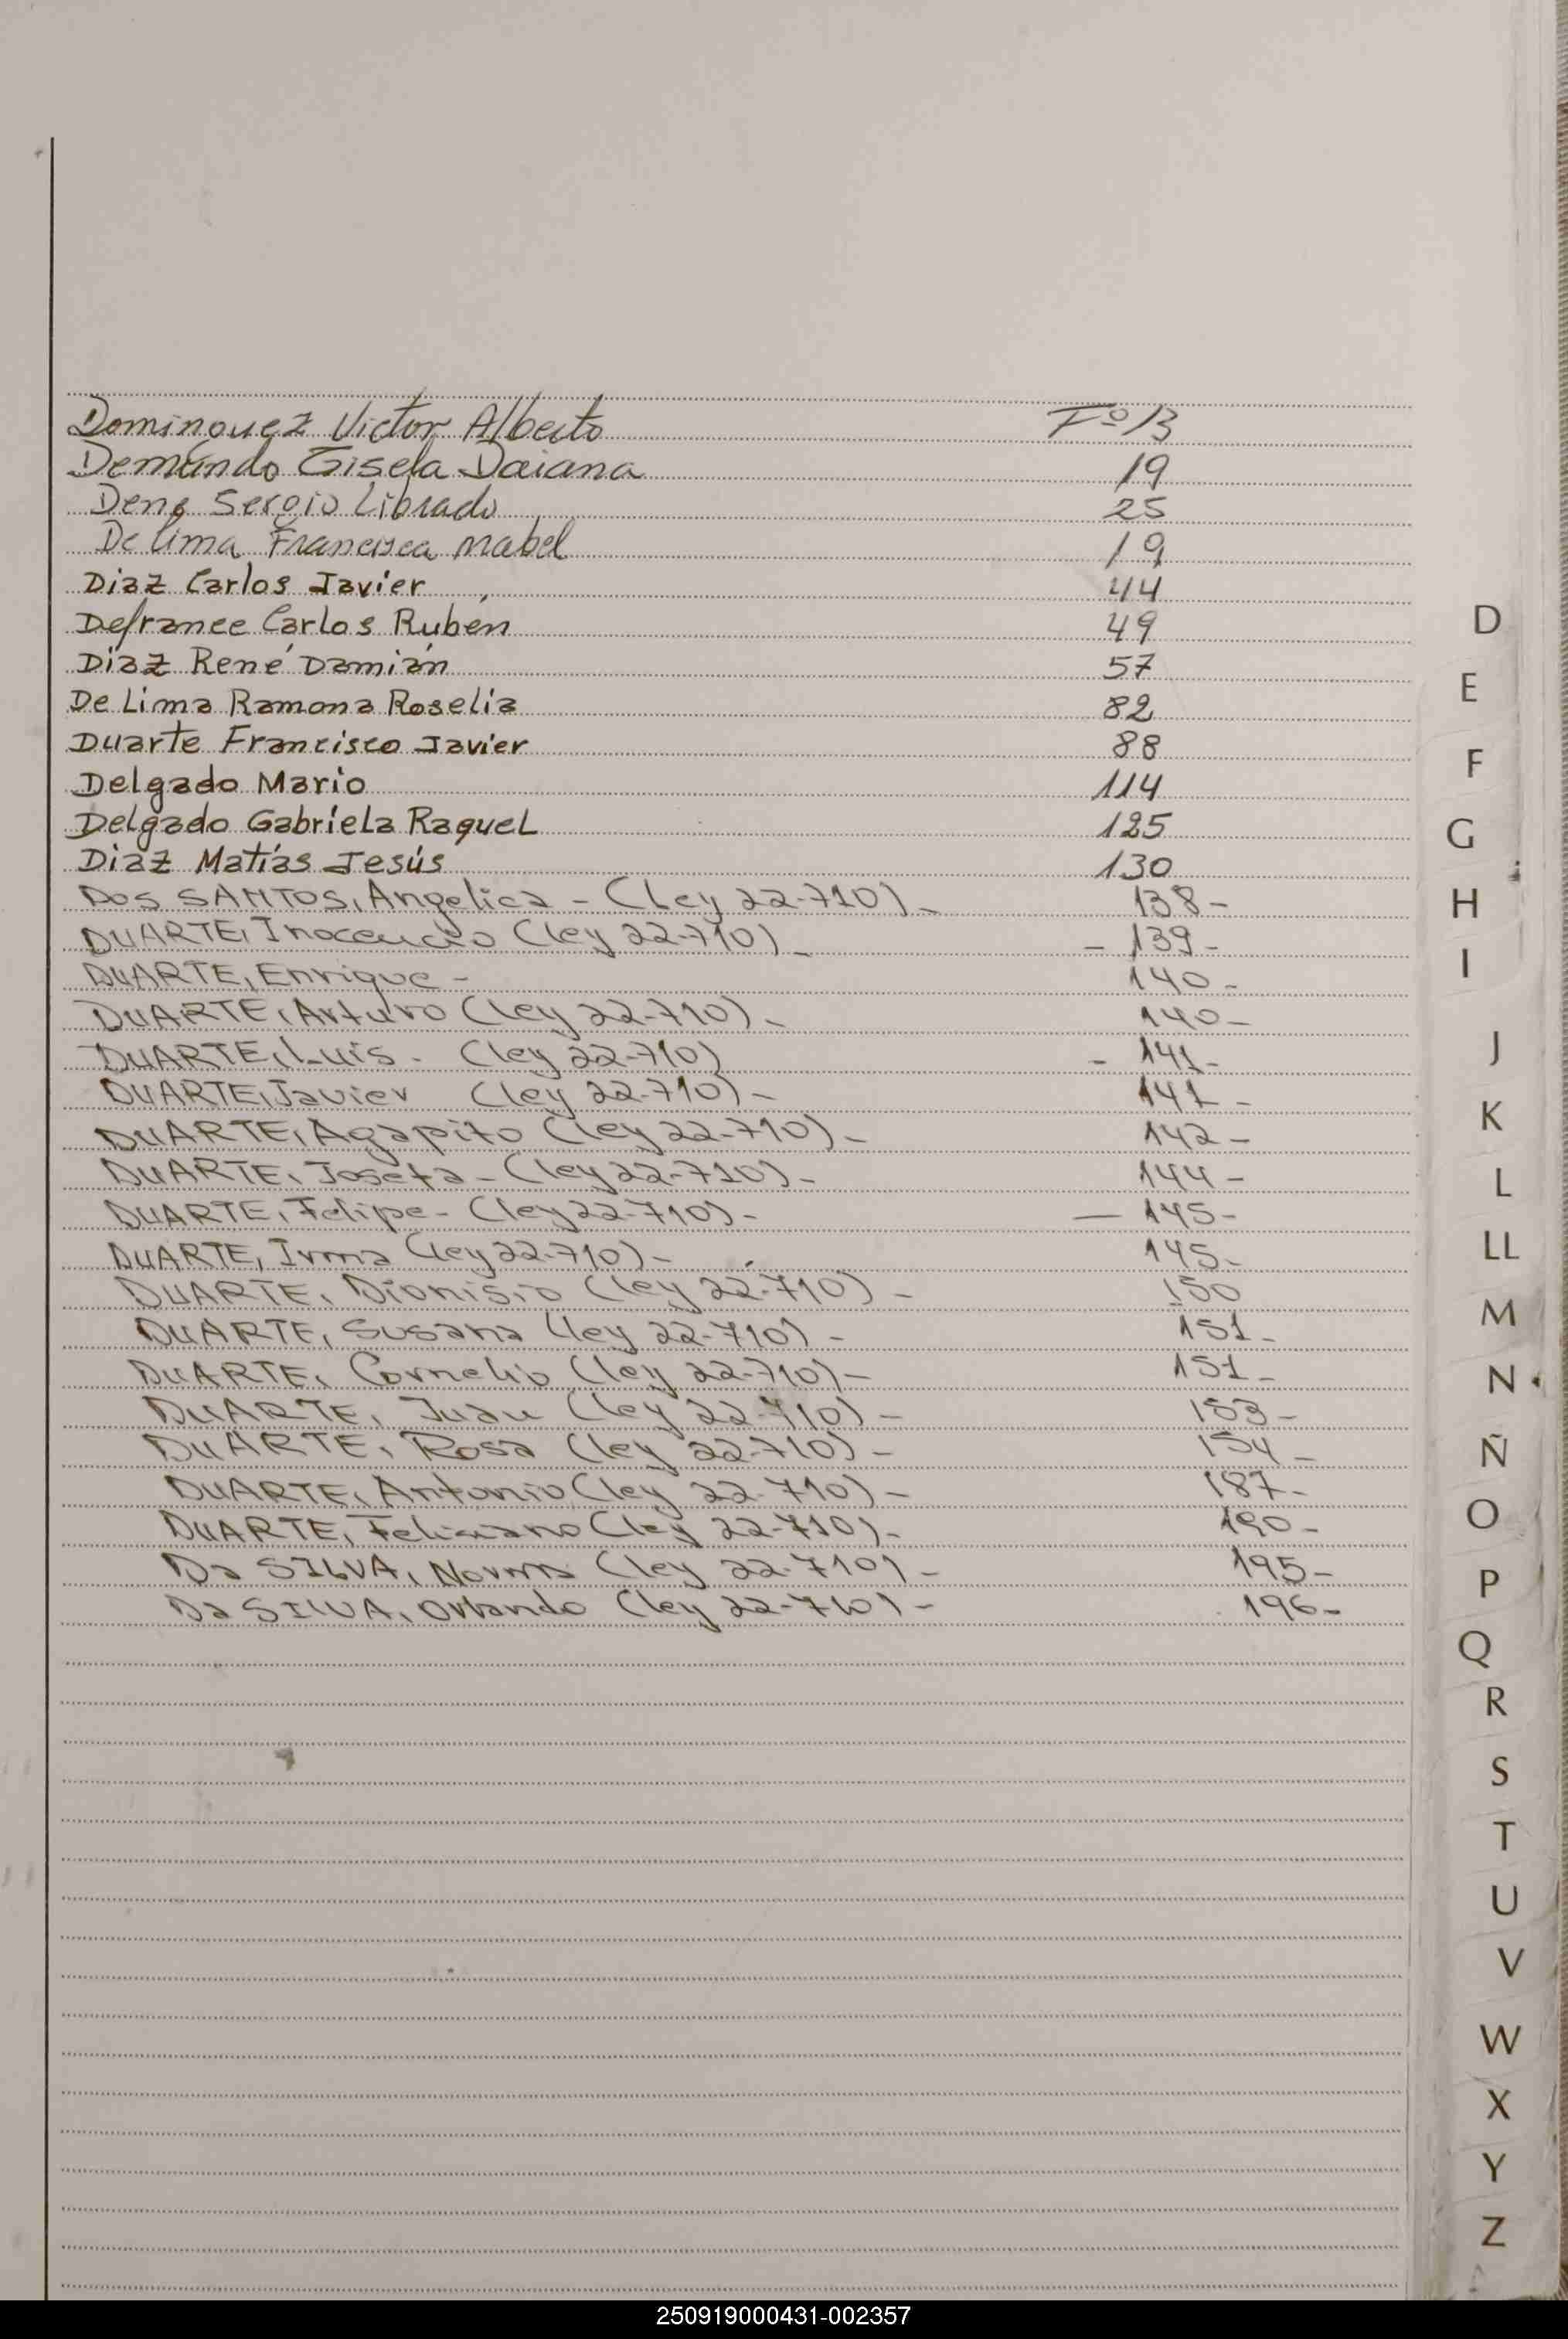 Dominguez Victor Alberto Fº 13
Demundo Gisela Daiana 19
Dene Sergio Librado 25
De lima Francisca Mabel 19
Diaz Carlos Javier 44
Defrance Carlos Rubén 49
Diaz René Damián 57
De Lima Ramona Roselia 82
Duarte Francisco Javier 88
Delgado Mario 114
Delgado Gabriela Raquel 125
Diaz Matías Jesús 130
Dos SANTOS, Angelica - (Ley 22-710) - 138 -
DUARTE, Inocencio (ley 22-710) - - 139 -
DUARTE, Enrique - 140 -
DUARTE, Arturo (ley 22-710) - 140 -
DUARTE, Luis - (ley 22-710) - 141 -
DUARTE, Javier (ley 22-710) - 141 -
DUARTE, Agapito (ley 22-710) - 142 -
DUARTE, Josefa - (ley 22-710) - 144 -
DUARTE, Felipe - (ley 22-710) - - 145 -
DUARTE, Irma (ley 22-710) - 145 -
DUARTE, Dionisio (ley 22-710) - 150
DUARTE, Susana (ley 22-710) - 151 -
DUARTE, Cornelio (ley 22-710) - 151 -
DUARTE, Juan (ley 22-710) - 153 -
DUARTE, Rosa (ley 22-710) - 154 -
DUARTE, Antonio (ley 22-710) - 187 -
DUARTE, Feliciano (ley 22-710) - 190 -
Da SILVA, Norma (ley 22-710) - 195 -
Da SILVA, Orlando (ley 22-710) - 196 -
D
E
F
G
H
I
J
K
L
LL
M
N
Ñ
O
P
Q
R
S
T
U
V
W
X
Y
Z
250919000431-002357